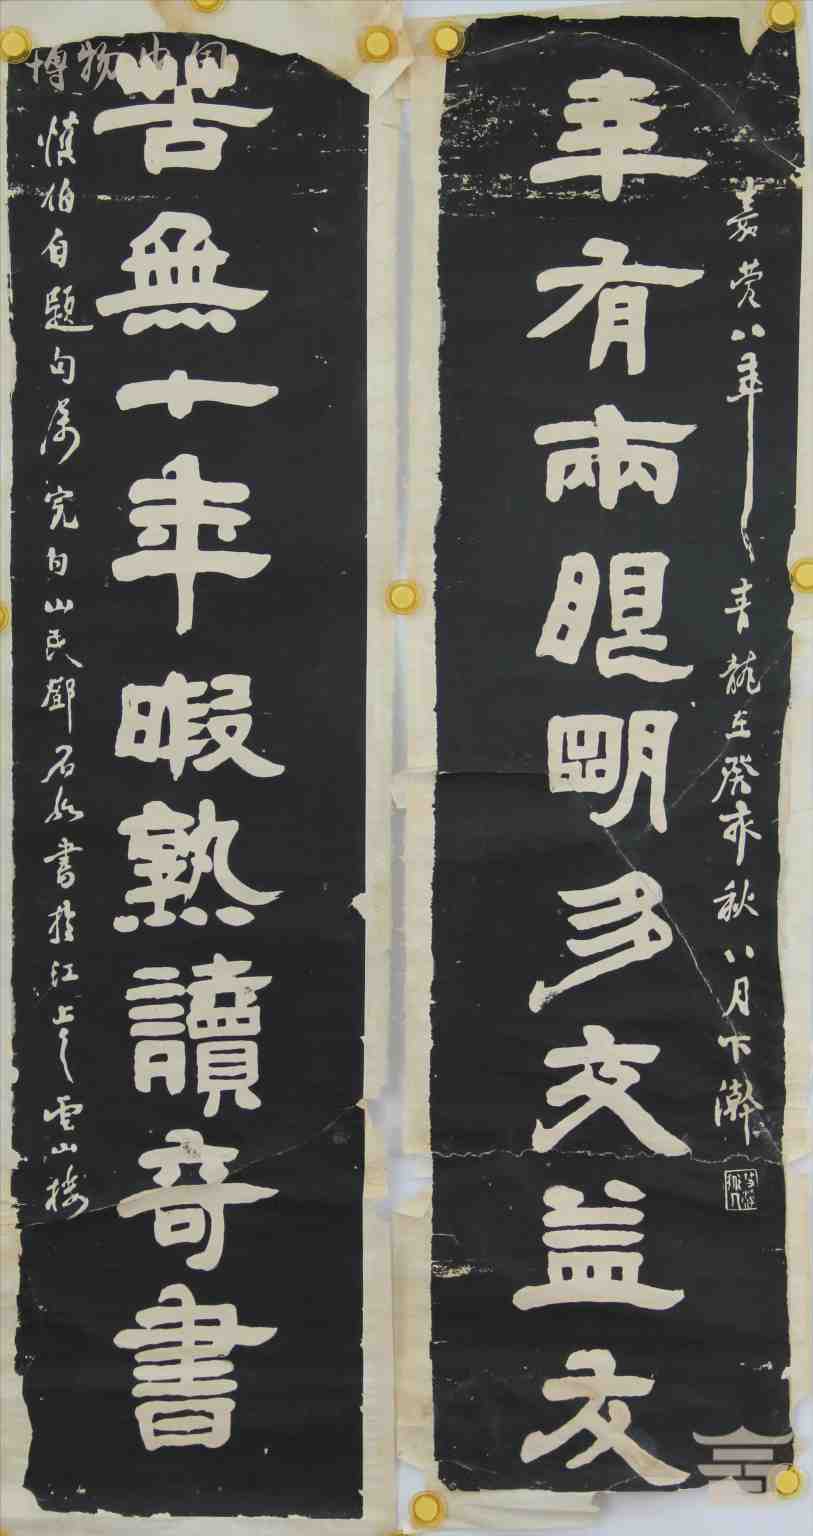 嘉慶八年青龍在癸亥秋八月下澣
幸有兩眼明多交益友
苦無十年暇熟讀奇書
慎伯自題句屬完白山民鄧石如書於江上之雲山樓
博物中国